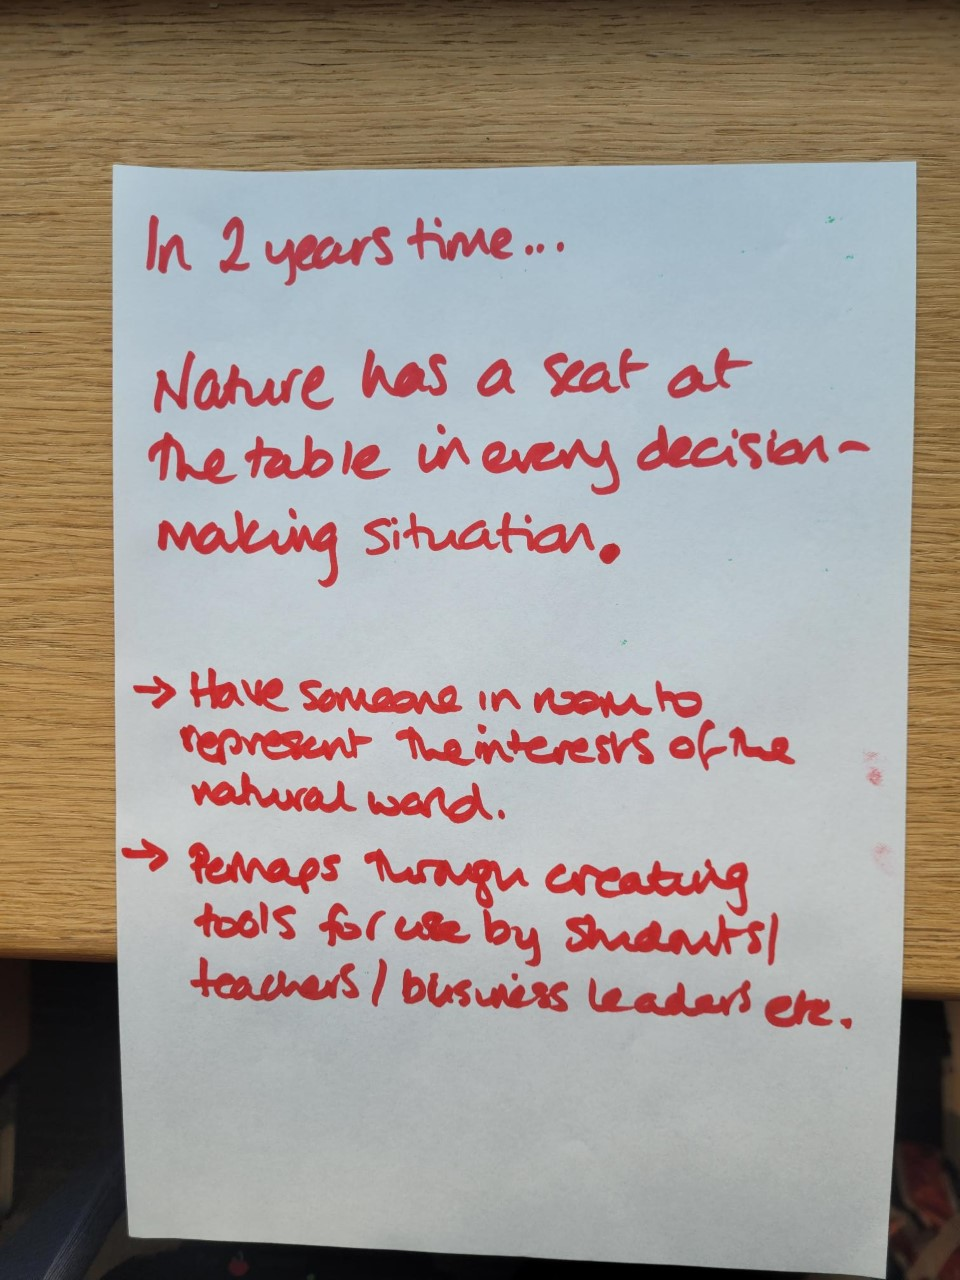 In 2 years time...
Nature has a seat at
the table in every decision-
making situation.
→ Have someone in room to
represent the interests of the
natural world.
→ Perhaps through creating
tools for use by students/
teachers / business leaders etc.